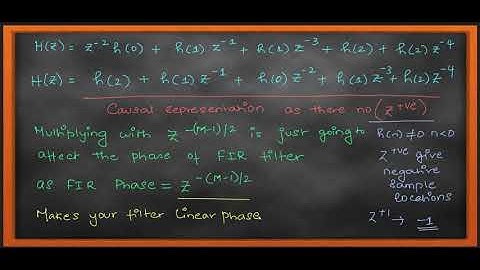 H(z) = z⁻² h(0) + h(1) z⁻¹ + h(1) z⁻³ + h(2) + h(2) z⁻⁴
H(z) = h(2) + h(1) z⁻¹ + h(0) z⁻² + h(1) z⁻³ + h(2) z⁻⁴
Causal representation as there no (z⁺ᵛᵉ)
Multiplying with z^-(M-1)/2 is just going to
affect the phase of FIR filter
as FIR Phase = z^-(M-1)/2
Makes your filter linear phase
h(n) ≠ 0 n<0
z⁺ᵛᵉ give
negative
sample
locations
z⁺¹ → -1